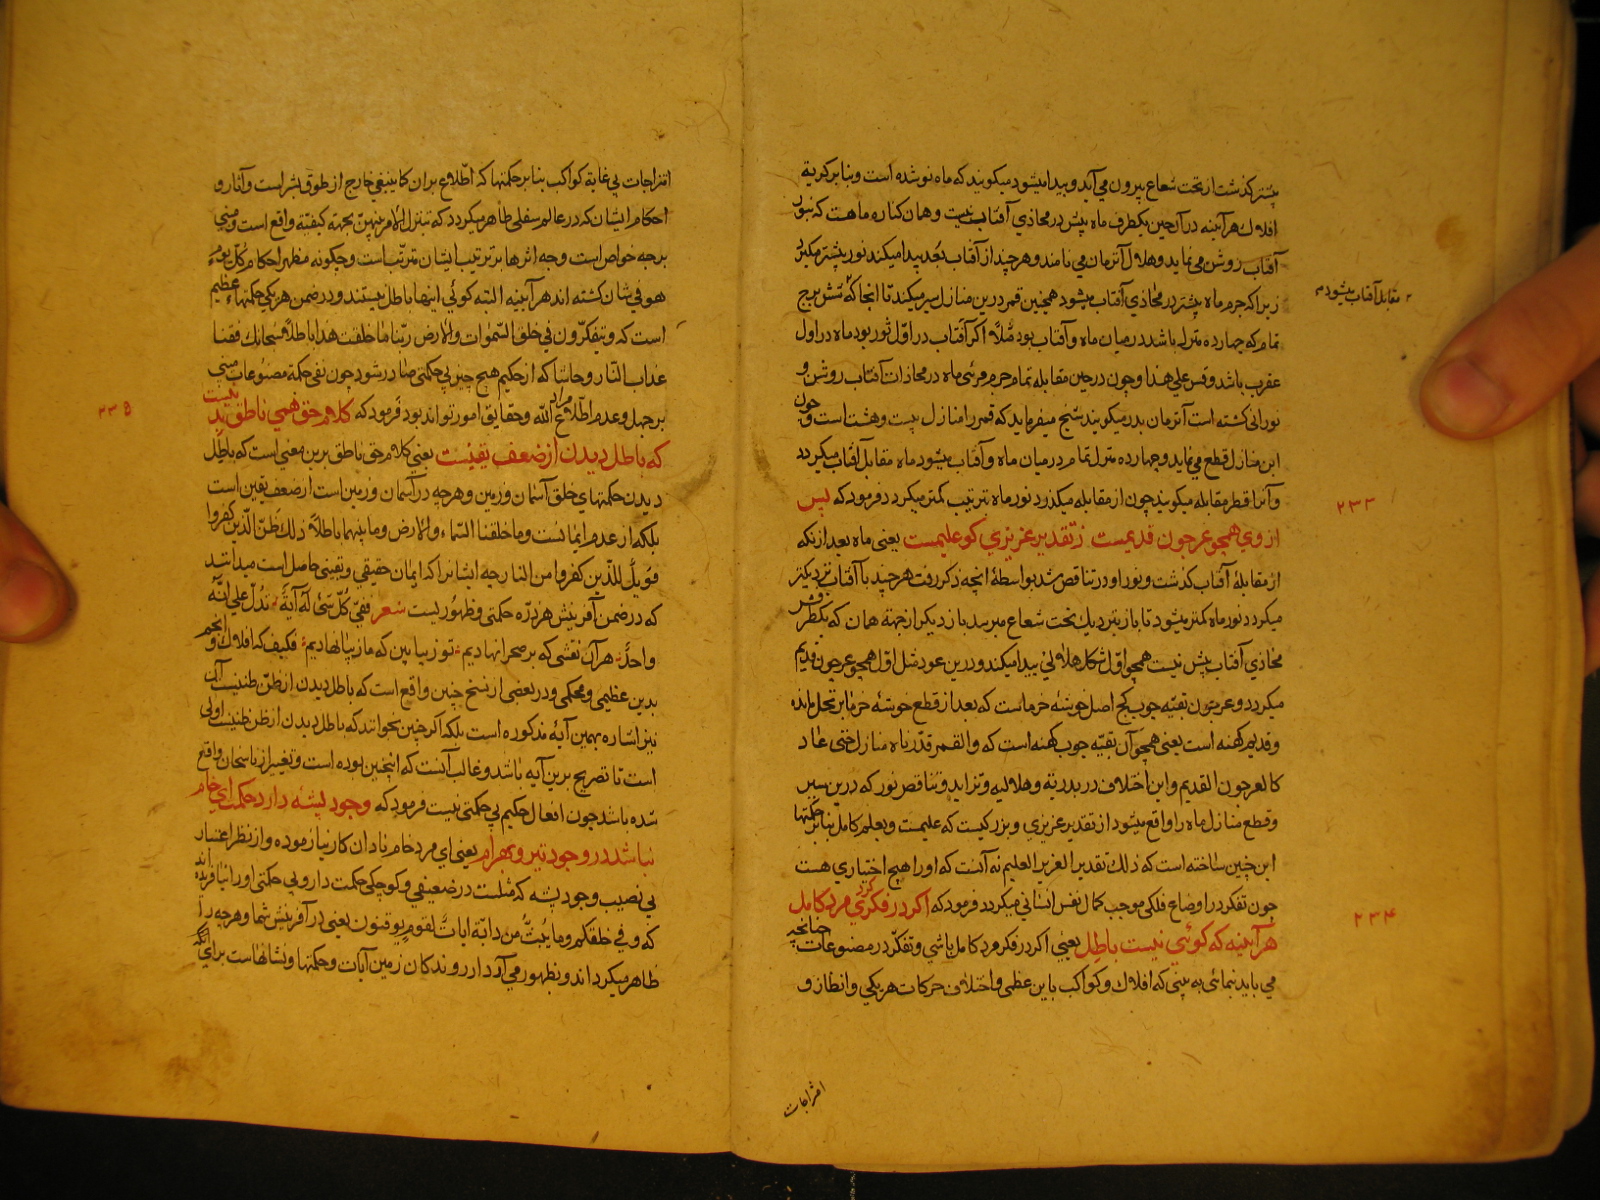 پیشتر کذشت از تحت شعاع بیرون می آید و پیدا میشود میکویند که ماه نو شده است و بنابر کریة
افلاک هر آینه در آن حین یکطرف ماه پیش در محاذی آفتاب نیست و همان کناره ماهت که بنور
آفتاب روشن می نماید و هلال آنزمان می نامند و هر چند از آفتاب بعد پیدا میکند نور پیشتر میکیرد
زیرا که جرم ماه پیشتر در محاذی آفتاب میشود همچنین قمر درین منازل سیر میکند تا انجا که شش برج
۲ مقابل آفتاب میشود م
تمام که چهارده منزل باشد در میان ماه و آفتاب بود مثلا اکر آفتاب در اول ثور بود ماه در اول
عقرب باشد و قس علی هذا و چون در حین مقابله تمام جرم مرئی ماه در محاذات آفتاب روشن و
نورانی کشته است آنزمان بدر میکویند شیخ میفرماید که قمر را منازل بیست و هشت است و چون
این منازل قطع می نماید و چهارده منزل تمام در میان ماه و آفتاب میشود ماه مقابل آفتاب میکردد
و آنرا قطر مقابله میکویند چون از مقابله میکذرد نور ماه بترتیب کمتر میکردد فرمود که پس
۲۳۳
از وی همچو عرجون قدیمست ز تقدیر عزیزی کو علیمست یعنی ماه بعد از نکه
از مقابلهٔ آفتاب کذشت و نور او در تناقص شد بواسطهٔ انچه ذکر رفت هر چند با آفتاب نزدیکتر
میکردد نور ماه کمتر میشود تا باز بنزدیک تحت شعاع میرسد باز دیکر از جهة همان که یکطرف قمر
محاذی آفتاب پیش نیست همچو اوّل شکل هلالی پیدا میکند و درین عود شل اوّل همچو عرجون قدیم
میکردد و عرجون بقیّه چوب کج اصل خوشهٔ خرماست که بعد از قطع خوشهٔ خرما بر نخل مانده
و قدیم کهنه است یعنی همچو آن بقیّه چوب کهنه است که والقمر قدّرناه منازل حتی عاد
کالعرجون القدیم و این اختلاف در بدریّة و هلالیه و تزاید و تناقص نور که درین سیر
و قطع منازل ماه را واقع میشود از تقدیر عزیزی و بزرکیست که علیمست و بعلم کامل بنابر حکمتها
این چنین ساخته است که ذلک تقدیر العزیز العلیم نه آنست که او را هیچ اختیاری هست
چون تفکر در اوضاع فلکی موجب کمال نفس انسانی میکردد فرمود که اکر در فکر کردی مرد کامل
۲۳۴
هر آیینه که کوئی نیست باطل یعنی اکر در فکر مرد کامل باشی و تفکّر در مصنوعات چنانچه
می باید بنمائی به بینی که افلاک و کواکب باین عظمی و اختلاف حرکات هر یکی و انظار و
اقتراجات
اقتراجات بی غایة کواکب بنابر حکمتها که اطّلاع بران کاینبغی خارج از طوق بشر است و آثار و
احکام ایشان که در عالم سفلی ظاهر میکردد که یتنزل الامر بینهنّ بچه کیفیّة واقع است و مبنی
بر چه خواص است و چه اثرها بر ترتیب ایشان مترتّب است و چکونه مظهر احکام کلّ یوم
هو فی شان کشته اند هر آیینه البته کوئی اینها باطل نیستند و در ضمن هر یکی حکمتهاء عظیم
است که و یتفکّرون فی خلق السّموات والارض ربّنا ما خلقت هذا باطلا سبحانک فقنا
عذاب النّار و حاشا که از حکیم هیچ چیز بی حکمتی صادر شود چون نفی حکمة مصنوعات مبنی
بر جهل و عدم اطّلاع مراد اللّه و حقایق امور تواند بود فرمود که کلام حق همی ناطق بد نیست
۲۳۵
که باطل دیدن از ضعف یقینست یعنی کلام حق ناطق برین معنی است که باطل
دیدن حکمتهای خلق آسمان و زمین و هرچه در آسمان و زمین است از ضعف یقین است
بلکه از عدم ایمانست و ما خلقنا السّماء والارض وما بینهما باطلا ذلک ظنّ الّذین کفروا
فویل للّذین کفروا من النار چه ایشانرا که ایمان حقیقی و یقینی حاصل است میدانند
که در ضمن آفرینش هر ذرّه حکمتی و ظهوریست شعر ففی کلّ شئ له آیة تدلّ علی انّه
واحد هر آن نقشی که بر صحرا نهادیم تو زیبا بین که ما زیبا نهادیم فکیف که افلاک و انجم
بدین عظیمی و محکمی و در بعضی از نسخ چنین واقع است که باطل دیدن از ظنّ طنینست آن
نیز اشاره بهمین آیهٔ مذکوره است بلکه اکر چنین بخوانند که باطل دیدن از ظن ظنینست اولی
است تا تصریح برین آیه باشد و غالب آنست که اینچنین بوده است و تغییر از ناسخان واقع
شده باشد چون افعال حکیم بی حکمتی نیست فرمود که وجود پشه دارد حکمت ای خام
نباشد در وجود تیر و بهرام یعنی ای مرد خام نادان کار نیازموده و از نظر اعتبار
بی نصیب وجود پشه که مثلست در ضعیفی و کوچکی حکمت دارد و بی حکمتی او را نیافریده اند
که و فی خلقکم وما یبثّ من دابّة آیات لقوم یوقنون یعنی در آفرینش شما و هرچه را
ظاهر میکرداند و بظهور می آرد از روندکان زمین آیات و حکمتها و نشانهاست برای آنکه